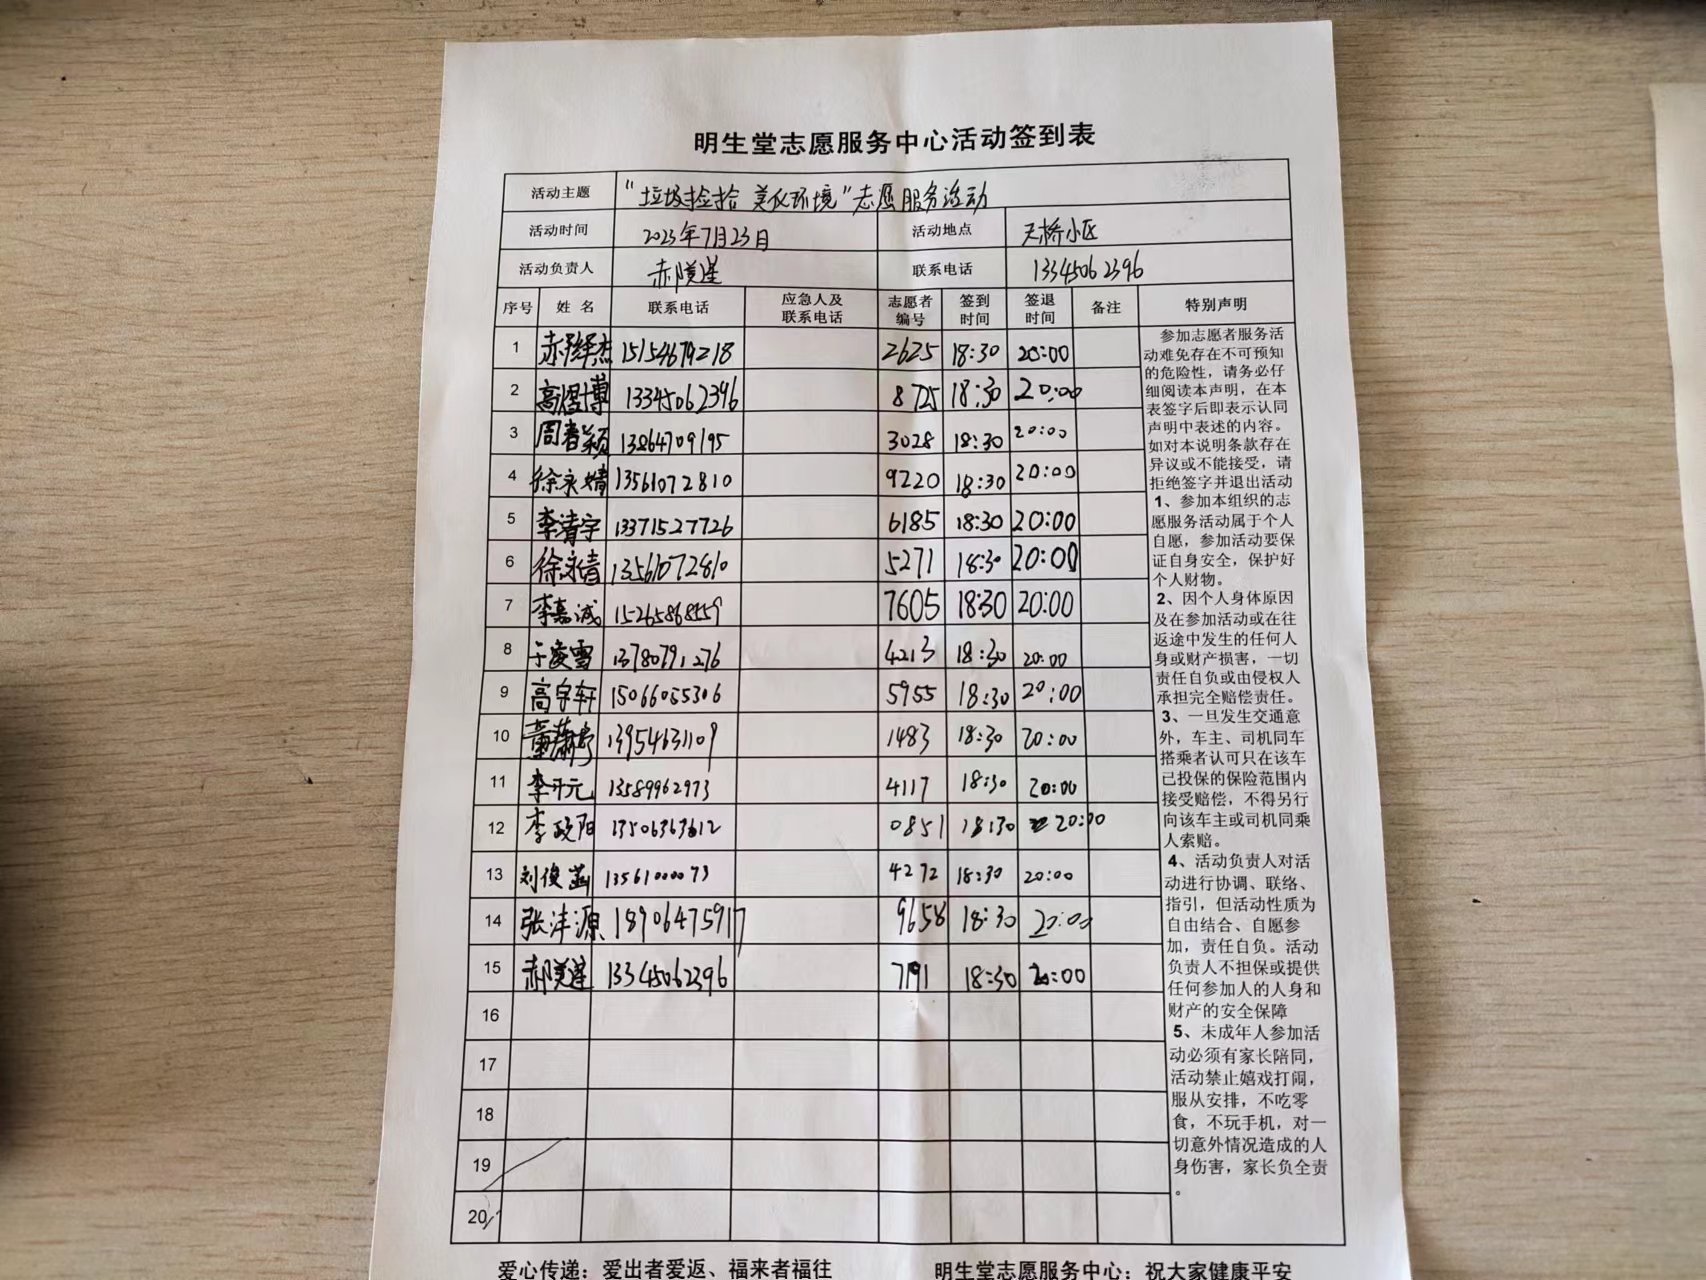 明生堂志愿服务中心活动签到表
活动主题 “垃圾捡拾 美化环境”志愿服务活动
活动时间 2023年7月23日 活动地点 天桥小区
活动负责人 郝美莲 联系电话 13345062396
序号 姓名 联系电话 应急人及联系电话 志愿者编号 签到时间 签退时间 备注 特别声明
1 15154679218 2625 18:30 20:00
2 高煜博 13345062396 8725 18:30 20:00
3 周春颖 13864709195 3028 18:30 20:00
4 徐永婧 13561072810 9220 18:30 20:00
5 李清宇 13371527726 6185 18:30 20:00
6 徐永青 13561072810 5271 18:30 20:00
7 李嘉诚 15265868559 7605 18:30 20:00
8 于凌雪 13780791276 4213 18:30 20:00
9 高宇轩 15066055306 5955 18:30 20:00
10 13954631109 1483 18:30 20:00
11 李开元 13589962973 4117 18:30 20:00
12 李政阳 13506363612 0851 18:30 20:00
13 刘俊菡 13561000073 4272 18:30 20:00
14 张沣源 18906475917 9658 18:30 20:00
15 郝美莲 13345062396 7191 18:30 20:00
16
17
18
19
20
参加志愿者服务活
动难免存在不可预知
的危险性，请务必仔
细阅读本声明，在本
表签字后即表示认同
声明中表述的内容。
如对本说明条款存在
异议或不能接受，请
拒绝签字并退出活动
1、参加本组织的志
愿服务活动属于个人
自愿，参加活动要保
证自身安全，保护好
个人财物。
2、因个人身体原因
及在参加活动或在往
返途中发生的任何人
身或财产损害，一切
责任自负或由侵权人
承担完全赔偿责任。
3、一旦发生交通意
外，车主、司机同车
搭乘者认可只在该车
已投保的保险范围内
接受赔偿，不得另行
向该车主或司机同乘
人索赔。
4、活动负责人对活
动进行协调、联络、
指引，但活动性质为
自由结合、自愿参
加，责任自负。活动
负责人不担保或提供
任何参加人的人身和
财产的安全保障
5、未成年人参加活
动必须有家长陪同，
活动禁止嬉戏打闹，
服从安排，不吃零
食，不玩手机，对一
切意外情况造成的人
身伤害，家长负全责
。
爱心传递：爱出者爱返、福来者福往 明生堂志愿服务中心：祝大家健康平安